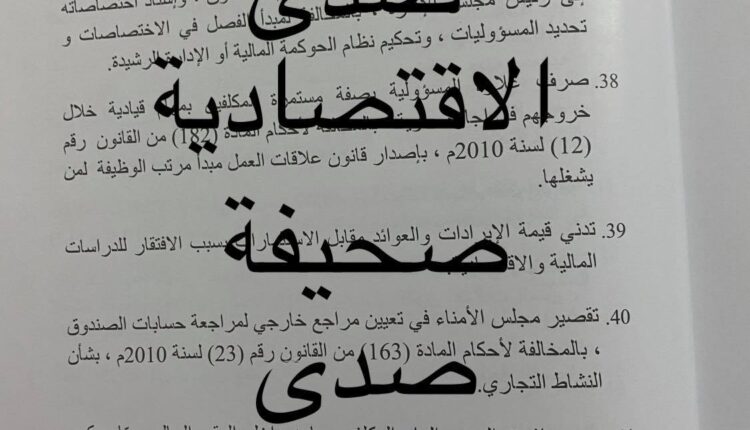 تحديد المسؤوليات ، وتحكيم نظام الحوكمة المالية أو الإدارة الرشيدة.
38. صرف علاوة المسؤولية بصفة مستمرة للمكلفين قيادية خلال
خروجهم في لأحكام المادة (182) من القانون رقم
(12) لسنة 2010م ، بإصدار قانون علاقات العمل مبدأ مرتب الوظيفة لمن
يشغلها.
39. تدني قيمة الإيرادات والعوائد مقابل بسبب الافتقار للدراسات
المالية
40. تقصير مجلس الأمناء في تعيين مراجع خارجي لمراجعة حسابات الصندوق
، بالمخالفة لأحكام المادة (163) من القانون رقم (23) لسنة 2010م ، بشأن
النشاط التجاري.
صدى
الاقتصادية
صحيفة
صدى